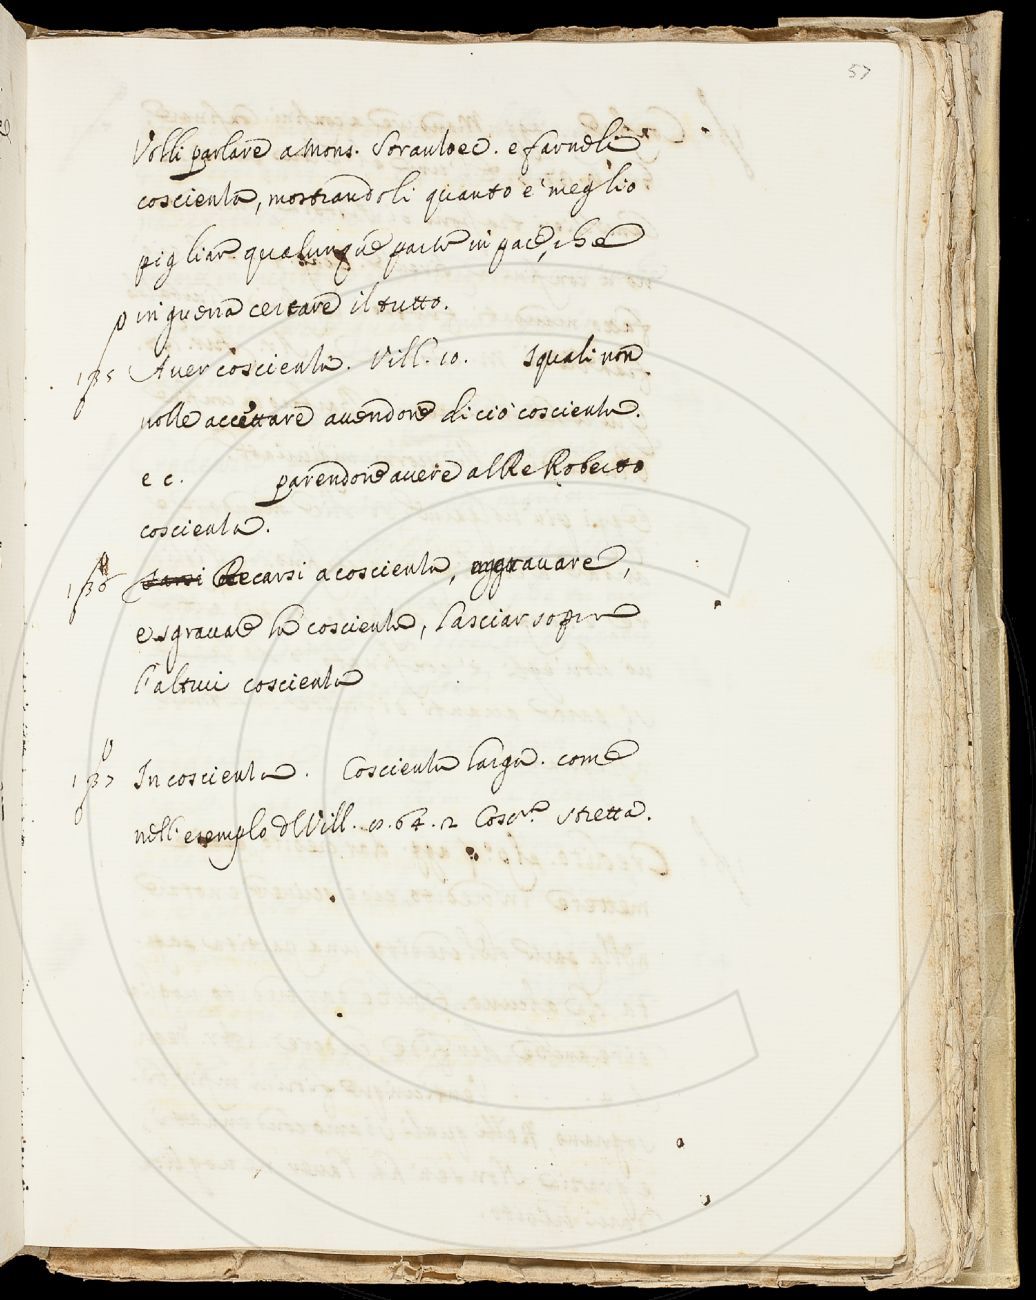 57
Volli parlare a Mons. Soranzo ec. e farneli
coscienza, mostrandoli quanto è meglio
pigliar qualunque parte in pace, che
in guerra certare il tutto.
135 Aver coscienza. Vill. 10. I quali non
volle accettare avendone di ciò coscienza.
ec. parendone avere al Re Roberto
coscienza.
136 Recarsi a coscienza, aggravare,
e sgravare la coscienza, lasciar sopra
l'altrui coscienza
137 In coscienza. Coscienza larga. come
nell'esemplo d Vill. 64. 2 Cosc.ª stretta.